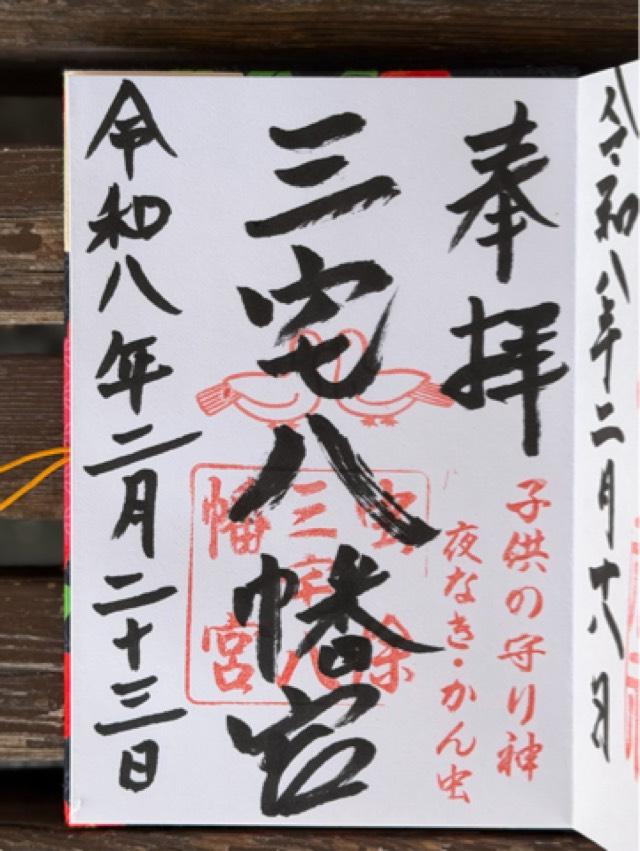 令和八年二月十八日
奉拝
子供の守り神
夜なき・かん虫
三宅八幡宮
虫除
三宅八
幡宮
令和八年二月二十三日